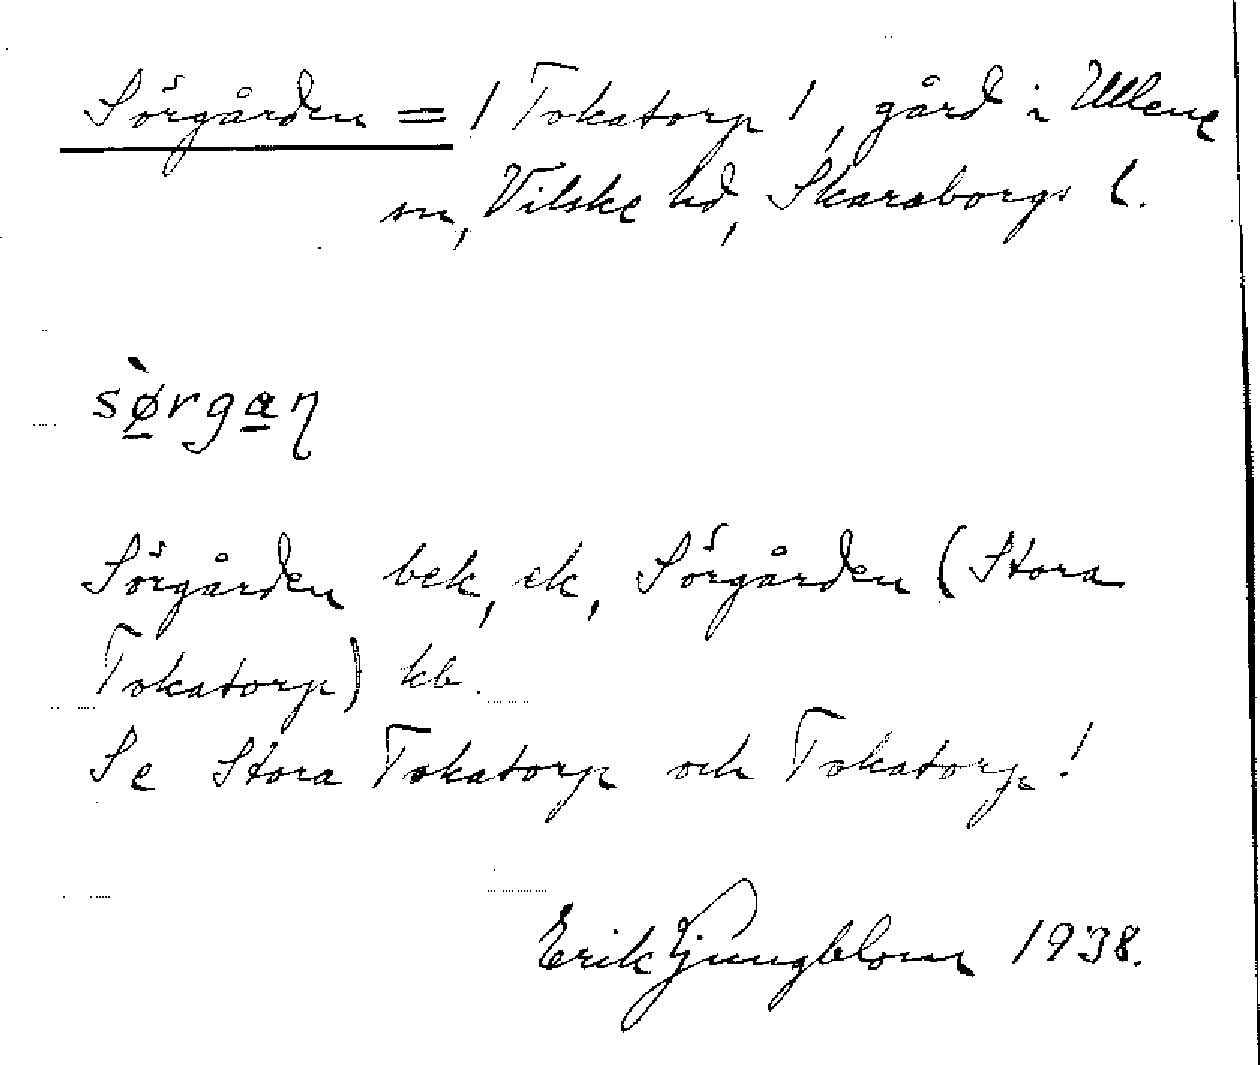 Sörgården = / Tokatorp /, gård i Ullene
sn, Vilske hd, Skaraborgs l.
sø̀rgaꞃ
Sörgården bek, ek, Sörgården (Stora
Tokatorp) kb.
Se Stora Tokatorp och Tokatorp!
Erik Ljungblom 1938.